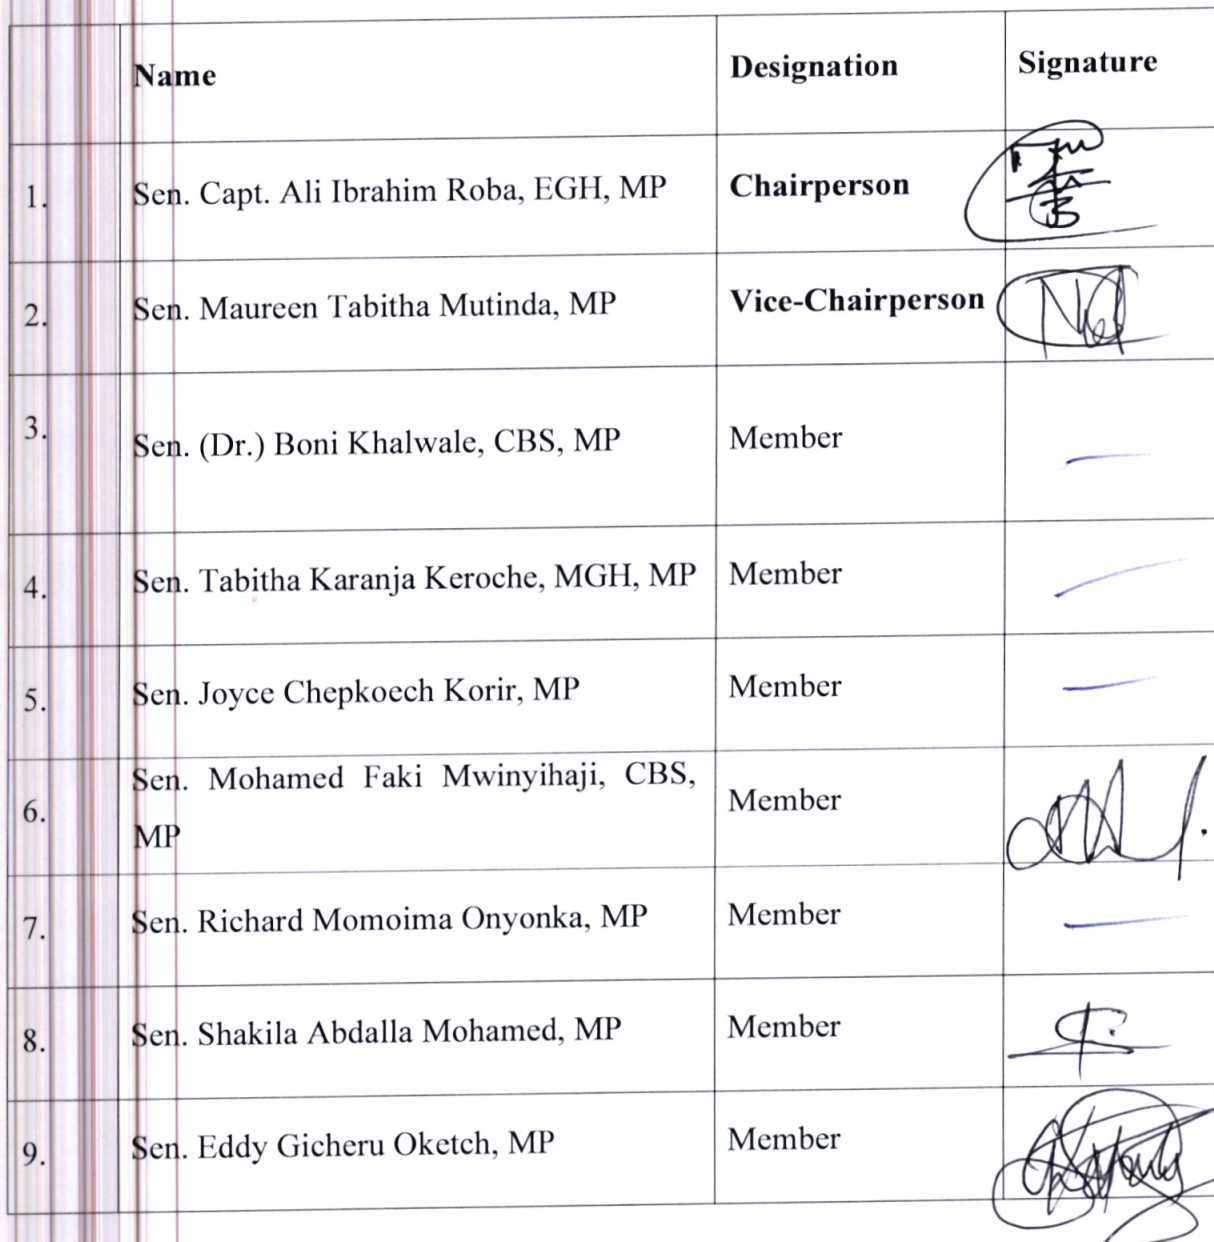 Name Designation Signature
1. Sen. Capt. Ali Ibrahim Roba, EGH, MP Chairperson
2. Sen. Maureen Tabitha Mutinda, MP Vice-Chairperson
3. Sen. (Dr.) Boni Khalwale, CBS, MP Member
4. Sen. Tabitha Karanja Keroche, MGH, MP Member
5. Sen. Joyce Chepkoech Korir, MP Member
6. Sen. Mohamed Faki Mwinyihaji, CBS, Member
MP
7. Sen. Richard Momoima Onyonka, MP Member
8. Sen. Shakila Abdalla Mohamed, MP Member
9. Sen. Eddy Gicheru Oketch, MP Member